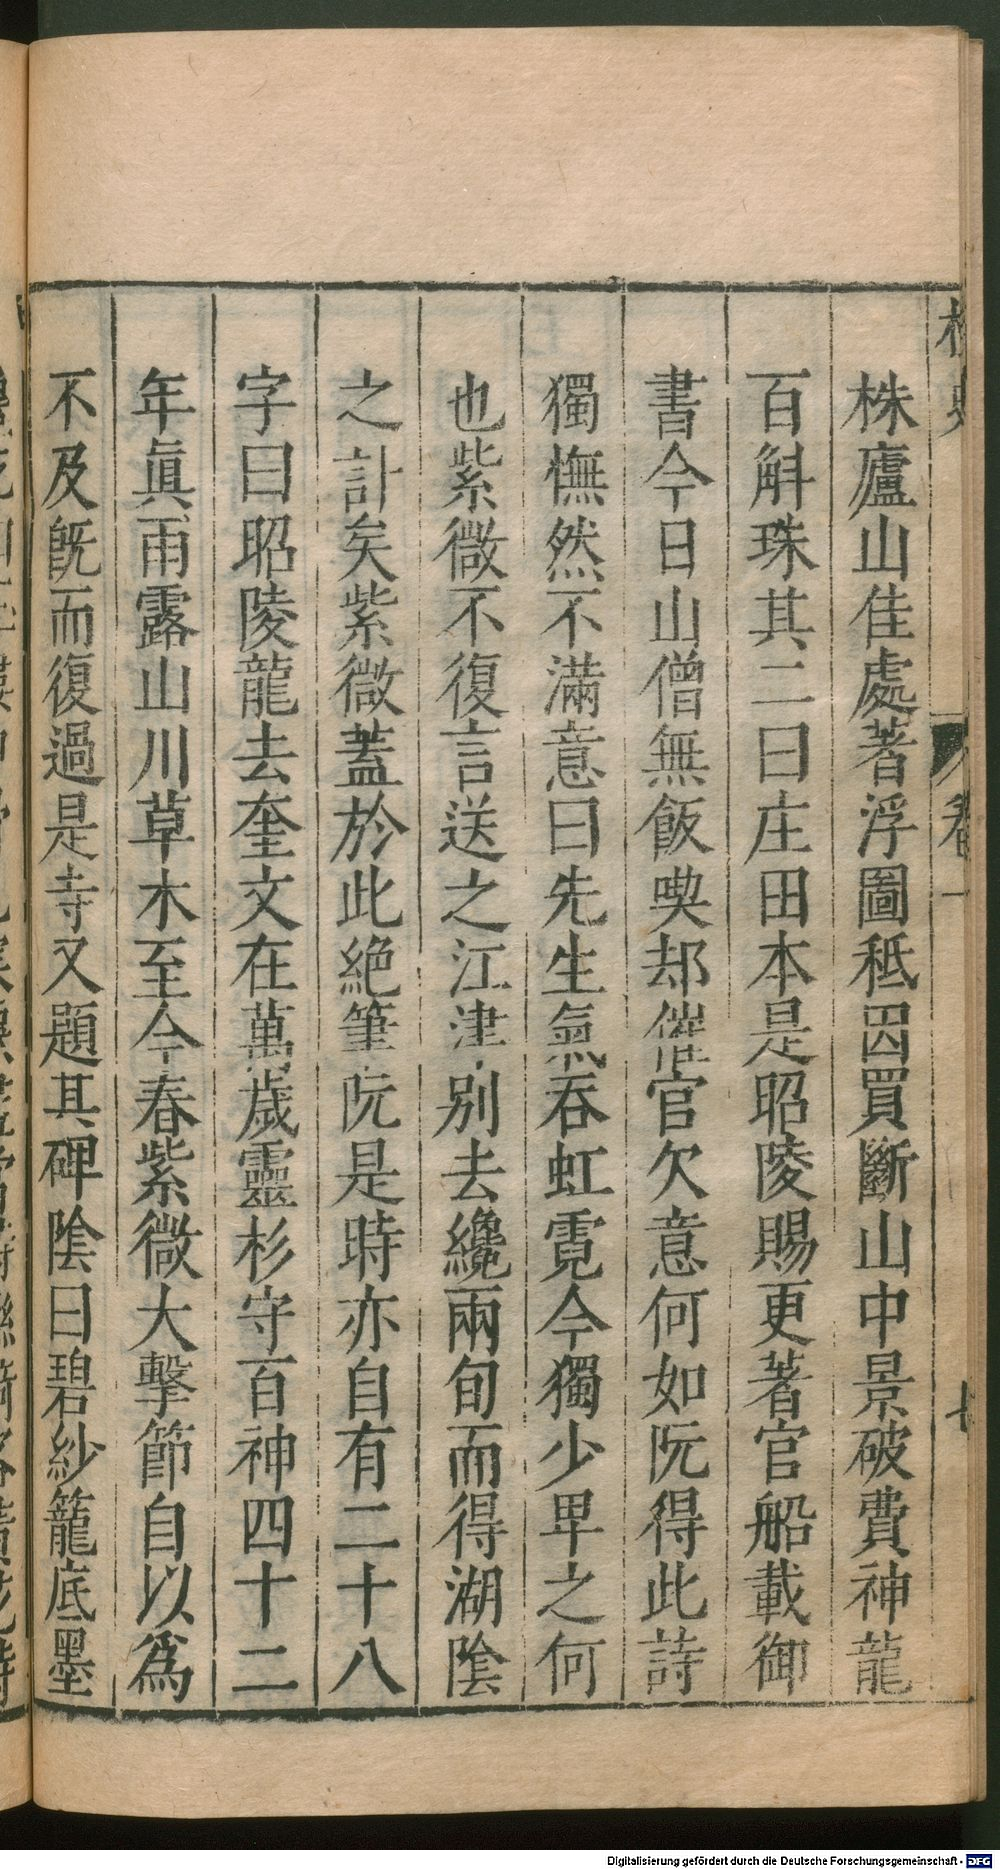 株廬山佳處著浮圖秪因買斷山中景破費神龍
百斛珠其二曰庄田本是昭陵賜更著官船載御
書今日山僧無飯喫却催官欠意何如阮得此詩
獨憮然不滿意曰先生氣吞虹霓今獨少卑之何
也紫微不復言送之江津別去纔兩旬而得湖陰
之計矣紫微蓋於此絶筆阮是時亦自有二十八
字曰昭陵龍去奎文在萬歲靈杉守百神四十二
年眞雨露山川草木至今春紫微大擊節自以爲
不及旣而復過是寺又題其碑陰曰碧紗籠底墨
Digitalisierung gefördert durch die Deutsche Forschungsgemeinschaft - DFG